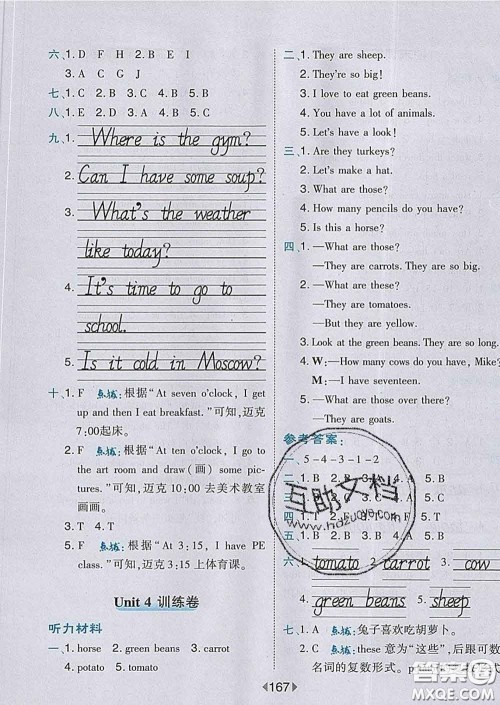 六、1. D F H 2. B E I
3. A C G J
七、1. C 2. B 3. A 4. C 5. B
八、1. E 2. D 3. A 4. B 5. C
九、1. Where is the gym?
2. Can I have some soup?
3. What's the weather
like today?
4. It's time to go to
school.
5. Is it cold in Moscow?
十、1. F 点拨：根据“At seven o'clock, I get
up and then I eat breakfast.”可知，迈克
7:00起床。
2. F 点拨：根据“At ten o'clock, I go to
the art room and draw(画) some pic-
tures.”可知，迈克 10:00 去美术教室
画画。
3. T 4. T
5. F 点拨：根据“At 3:15, I have PE
class.”可知，迈克 3:15 上体育课。
Unit 4 训练卷
听力材料
一、1. horse 2. green beans 3. carrot
4. potato 5. tomato
二、1. They are sheep.
2. They're so big!
3. I love to eat green beans.
4. You have a lot of animals.
5. Let's have a look!
三、1. Are they turkeys?
2. Let's make a hat.
3. What are those?
4. How many pencils do you have?
5. Is this a horse?
四、1. —What are those?
—They are carrots. They are so big.
2. —What are these?
—They are tomatoes.
—They are yellow.
3. Look at the green beans. They are so long.
4. W: —How many cows do you have, Mike?
M: —I have seventeen.
5. —What are those?
—They are goats.
参考答案：
一、5-4-3-1-2
二、1. B 2. C
三、1. B
四、1. F
五、1. B 2. C
六、1. tomato 2. carrot 3. cow
4. green beans 5. sheep
七、1. A 点拨：兔子喜欢吃胡萝卜。
2. C 点拨：these 意为“这些”，后跟可数
名词的复数形式。
167
互助文档
www.hdzuoye.com
答案圈
MXQE.COM